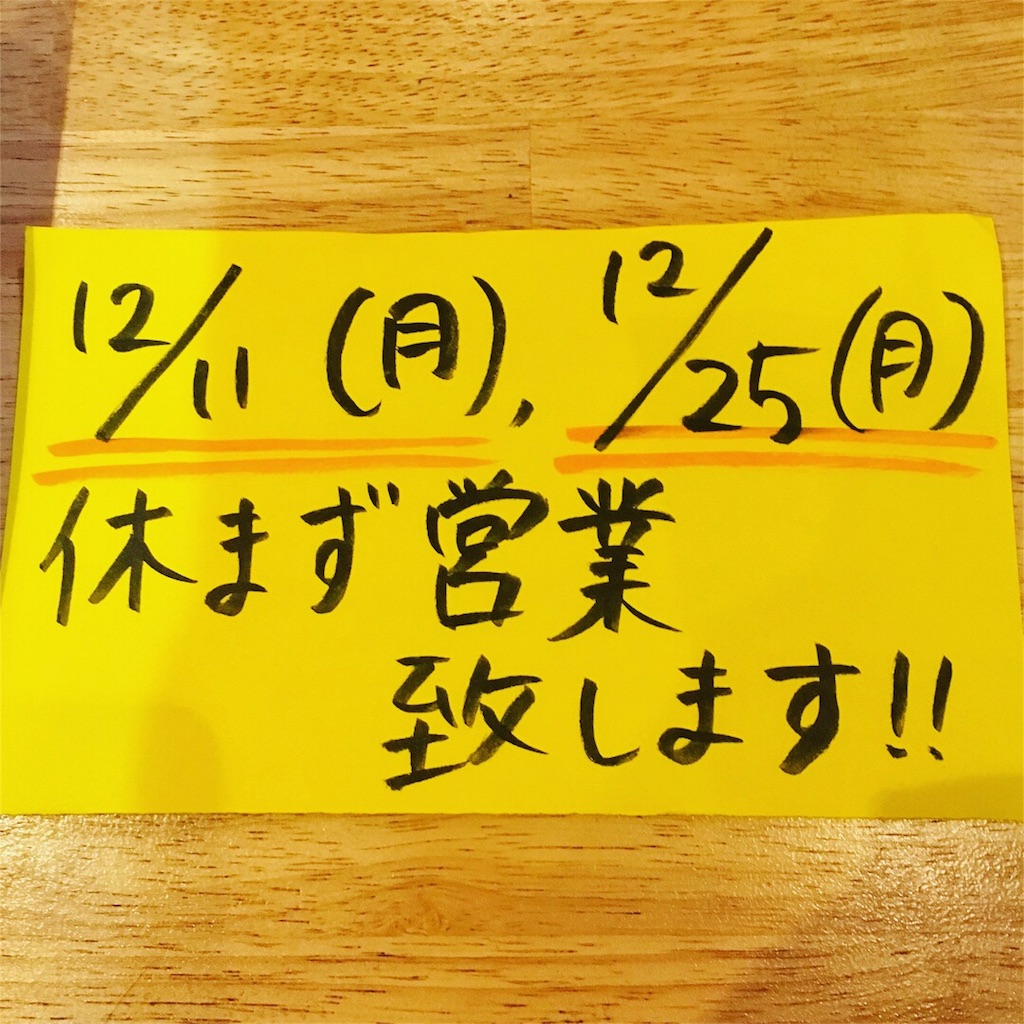 12/11(月), 12/25(月)
休まず営業
致します!!